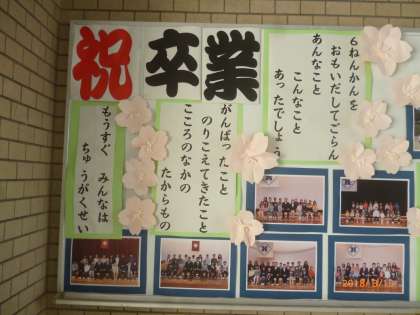 祝卒業
6ねんかんを
おもいだしてごらん
あんなこと
こんなこと
あったでしょう
がんばったこと
のりこえてきたこと
こころのなかの
たからもの
もうすぐ みんなは
ちゅうがくせい